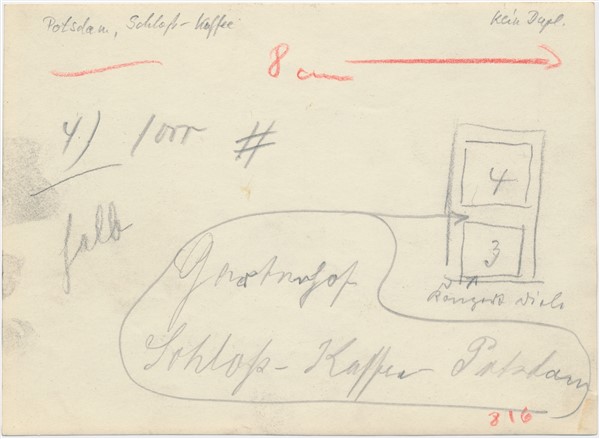 Potsdam, Schloß-Kaffee
Kein Dupl.
8 cm
4) 1000 #
4
falb
3
Gartenhof
Konzert Diele
Schloß-Kaffee Potsdam
816